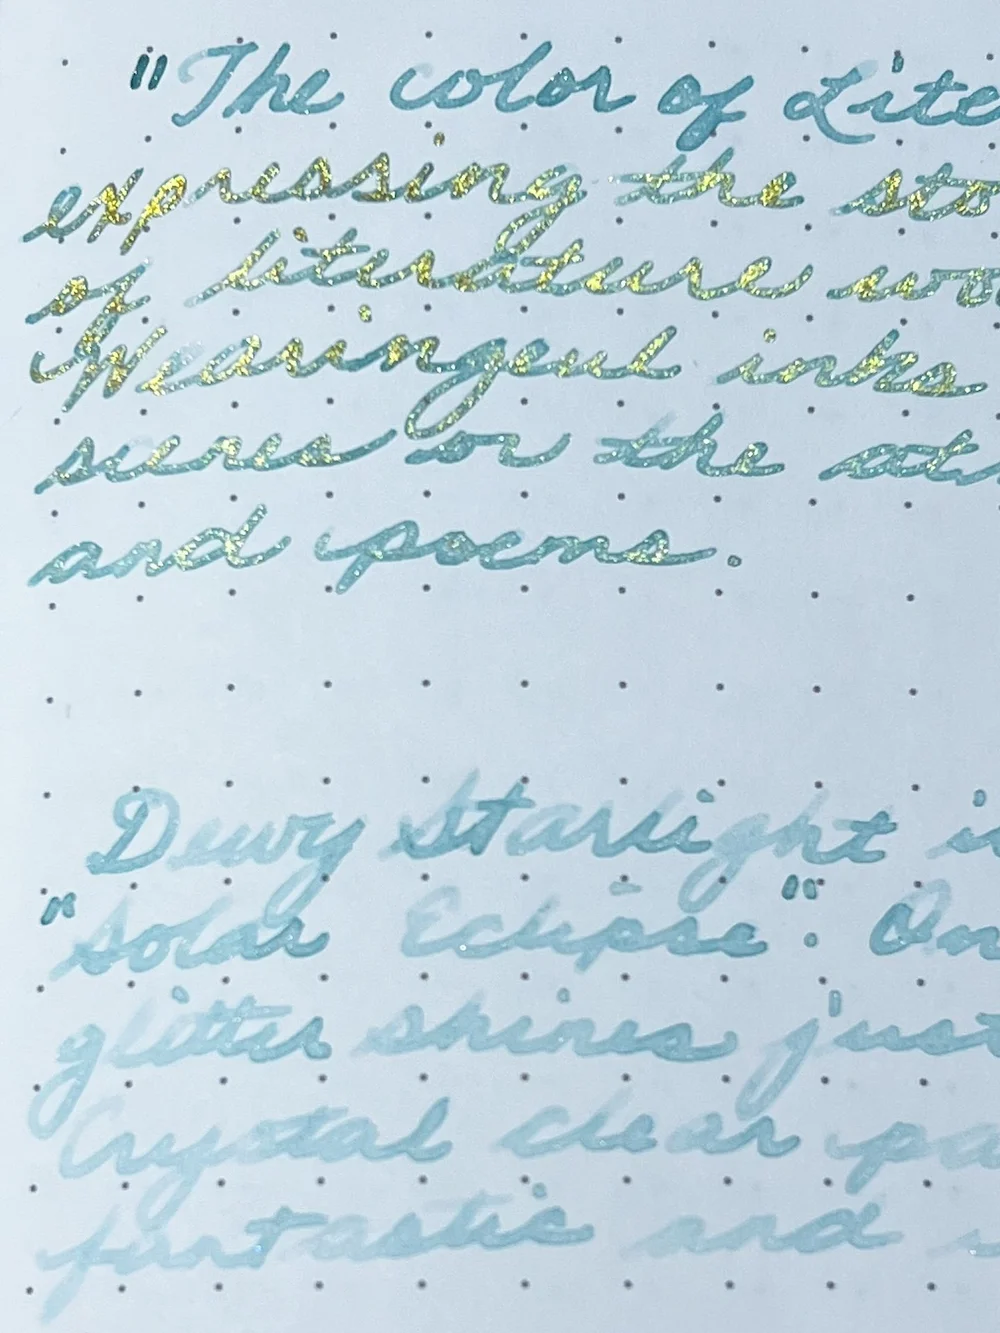 "The color of Lite
expressing the sto
of literature wo
Wearingeul inks
scenes or the at
and poems.
Dewy Starlight i
"Solar Eclipse". On
glitter shines just
Crystal clear pa
fantastic and